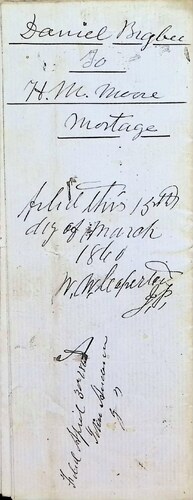 Daniel Bigbee
To
H. M. Moore
Mortage
Filed this 15th
day of March
1860
W. W.
J.P.
Filed April 30